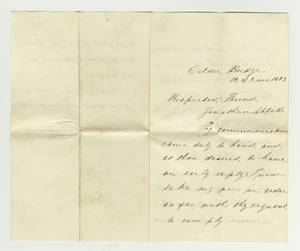 Cedar Ridge
12 of 2 mo 1883
Respected Friend
Jonathan
Thy communication
came duly to hand and
as thou desired to have
an early reply I now
take my pen in order
as far with thy request
to comply